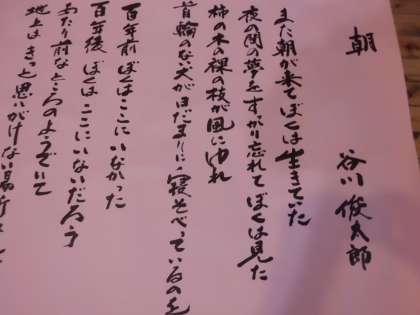 朝
谷川俊太郎
また朝が来てぼくは生きていた
夜の間の夢をすっかり忘れてぼくは見た
柿の木の裸の枝が風にゆれ
首輪のない犬が日だまりに寝そべっているのを
百年前ぼくはここにいなかった
百年後ぼくはここにいないだろう
あたり前なところのようでいて
地上はきっと思いがけない場所